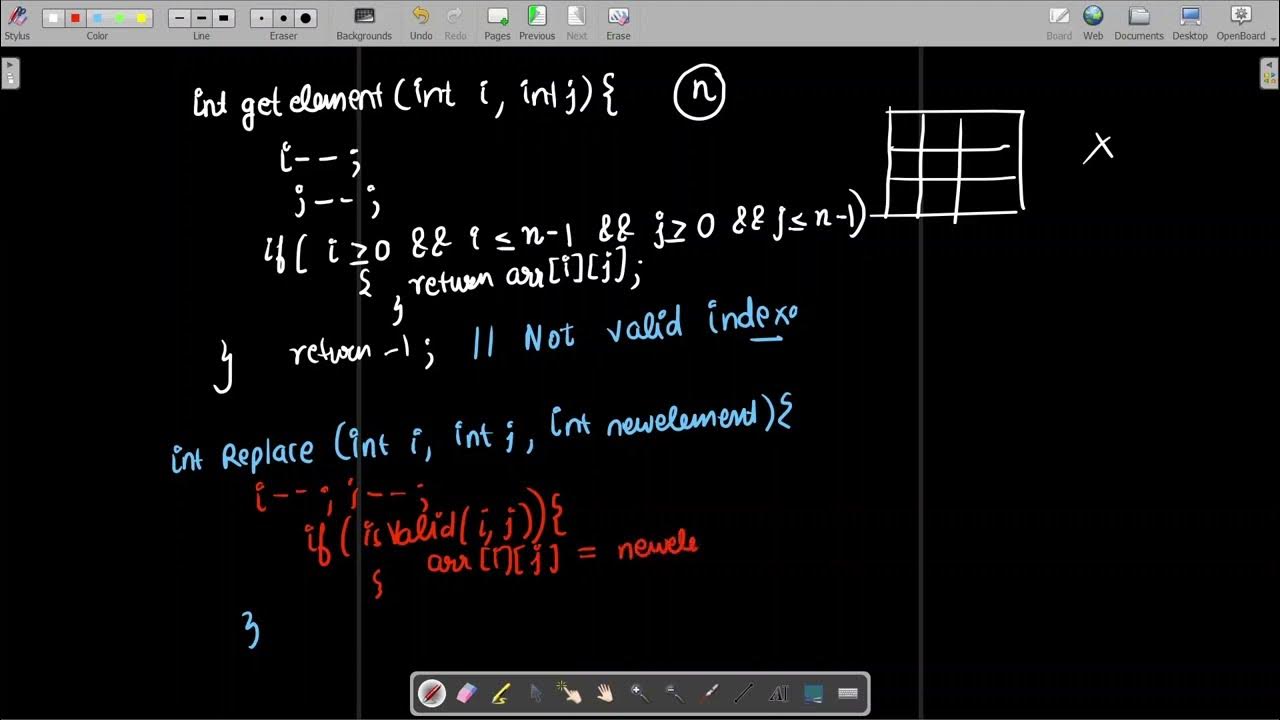 Stylus Color Line Eraser Backgrounds Undo Redo Pages Previous Next Erase Board Web Documents Desktop OpenBoard
int getelement (int i, int j) { n
i--;
j--;
X
if( i ≥ 0 && i ≤ n-1 && j ≥ 0 && j ≤ n-1)
{ return arr[i][j];
}
return -1; // Not valid index
}
int Replace (int i, int j, int newelement) {
i--; j--;
if( isvalid(i, j)) {
arr[i][j] = newele
}
}
AI